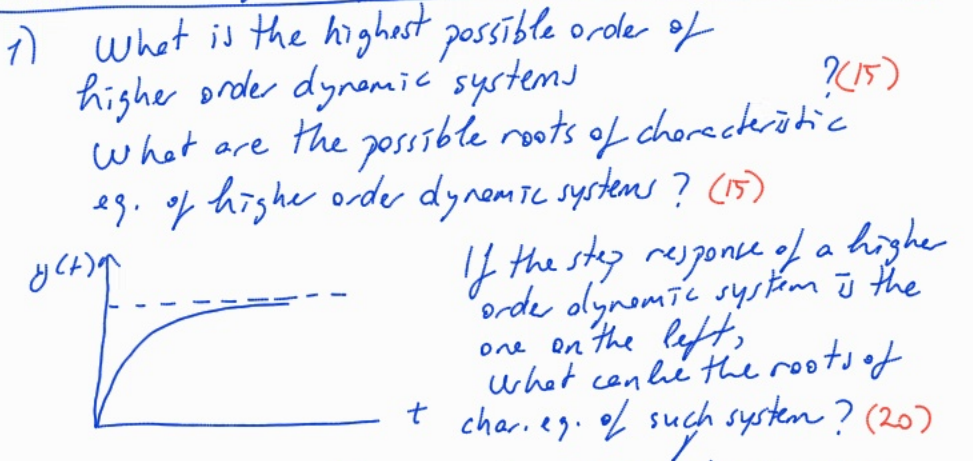 1) What is the highest possible order of
higher order dynamic systems ? (15)
What are the possible roots of characteristic
eq. of higher order dynamic systems? (15)
y(t)
If the step response of a higher
order dynamic system is the
one on the left,
What can be the roots of
t
char. eq. of such system? (20)